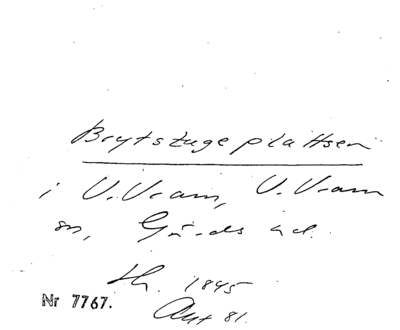 Brytstugeplattsen
i V.Vram, V.Vram
sn, Gärds hd.
th. 1845
Nr 7767.
Akt 81.